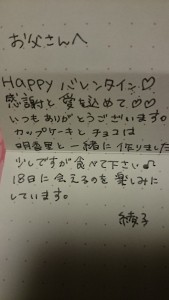 お父さんへ
Happy バレンタイン♡
感謝と愛を込めて♡♡
いつもありがとうございます。
カップケーキとチョコは
明香里と一緒に作りました
少しですが食べて下さい♪
18日に会えるのを楽しみに
しています。
綾子